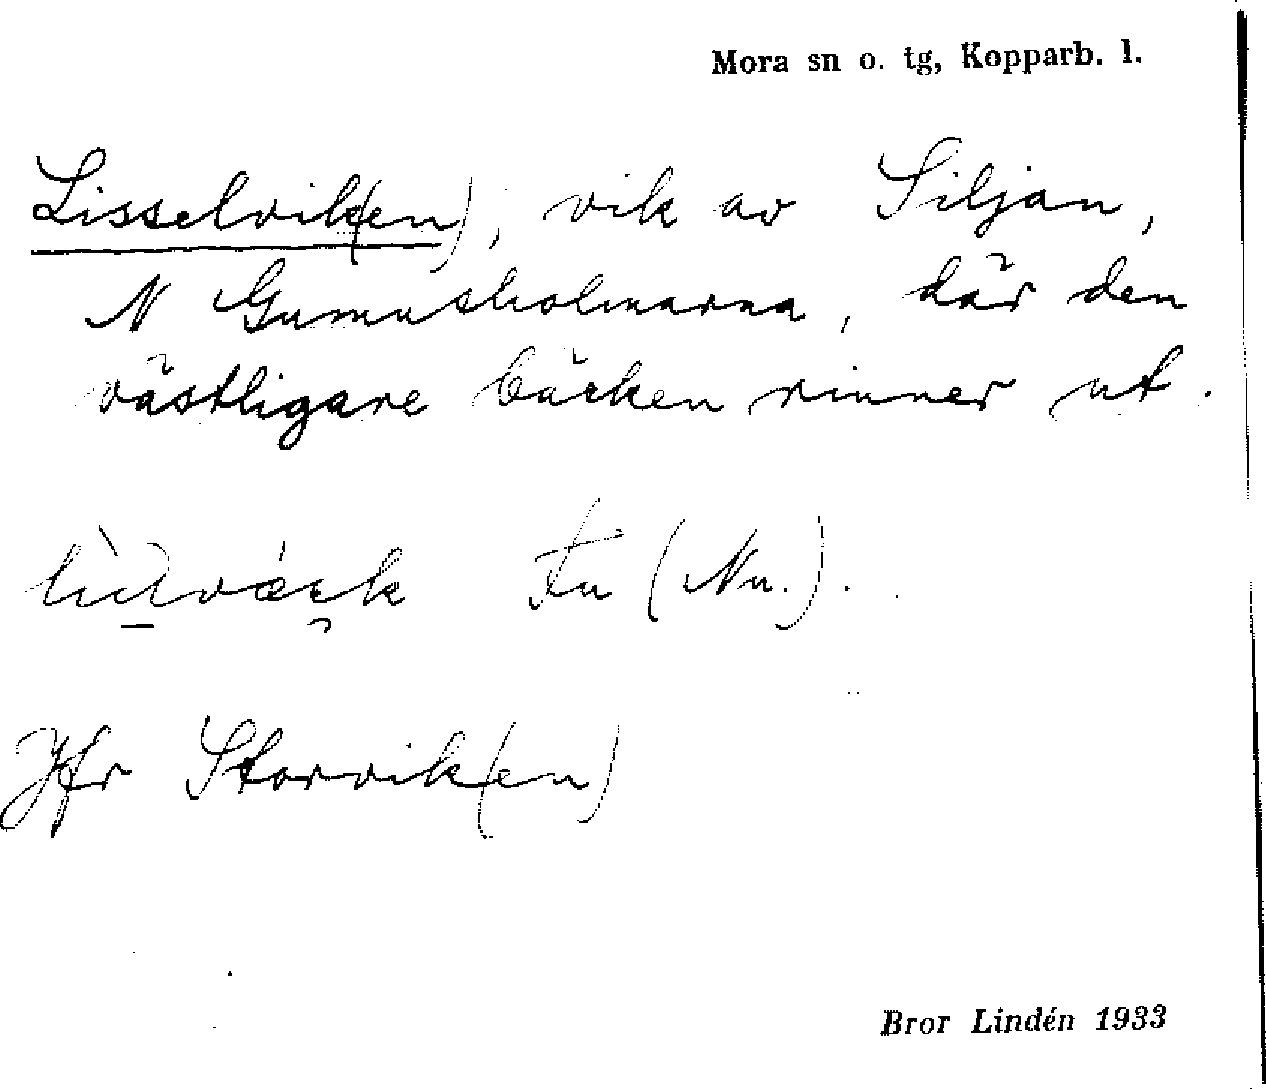 Mora sn o. tg, Kopparb. l.
Lisselvik(en), vik av Siljan,
N Gumusholmarna, där den
västligare bäcken rinner ut.
Fu (Nu.).
Jfr Storvik(en)
Bror Lindén 1933